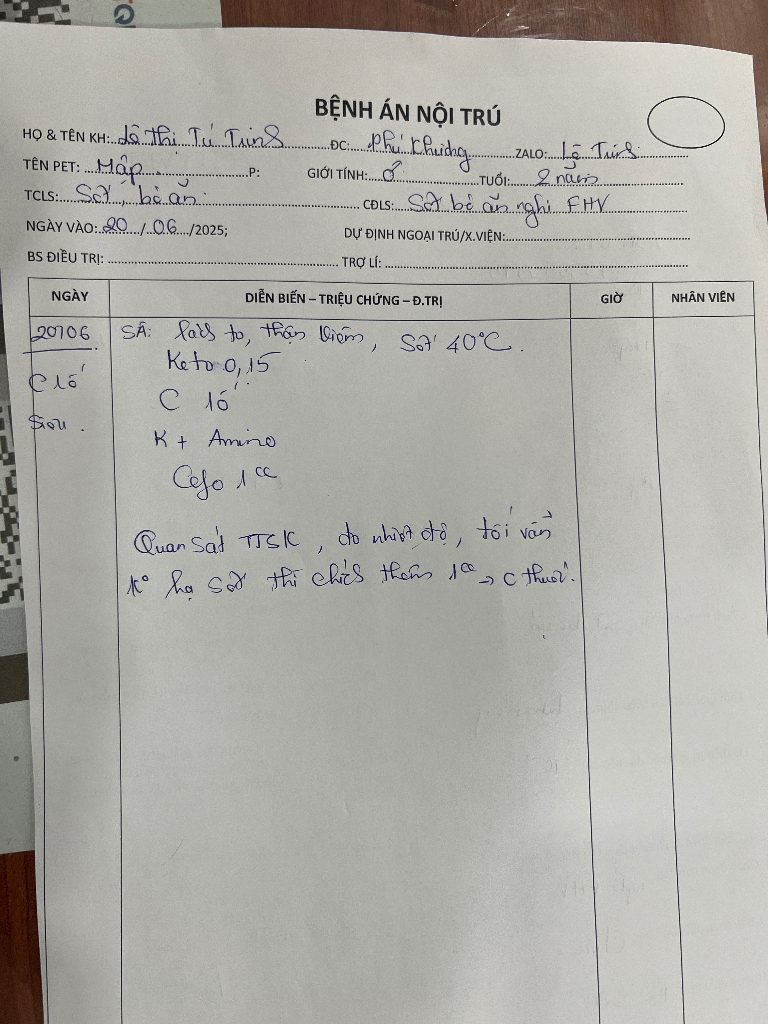 BỆNH ÁN NỘI TRÚ
HỌ & TÊN KH: Lê Thị Tú Trinh ĐC: Phú Khương ZALO: Lê Trinh
TÊN PET: Mập P: GIỚI TÍNH: ♂ TUỔI: 2 năm
TCLS: Sốt, bỏ ăn CĐLS: Sốt bỏ ăn nghi FHV
NGÀY VÀO: 20/06/2025; DỰ ĐỊNH NGOẠI TRÚ/X.VIỆN:
BS ĐIỀU TRỊ: TRỢ LÍ:
NGÀY DIỄN BIẾN – TRIỆU CHỨNG – Đ.TRỊ GIỜ NHÂN VIÊN
20/06 SÂ: lách to, thận viêm, Sốt 40°C.
Keto 0,15
C 16
C 16
K + Amino
Siêu.
Cefo 1cc
Quan sát TTSK, đo nhiệt độ, tối vẫn
k° hạ sốt thì chích thêm 1cc → C thuốc.